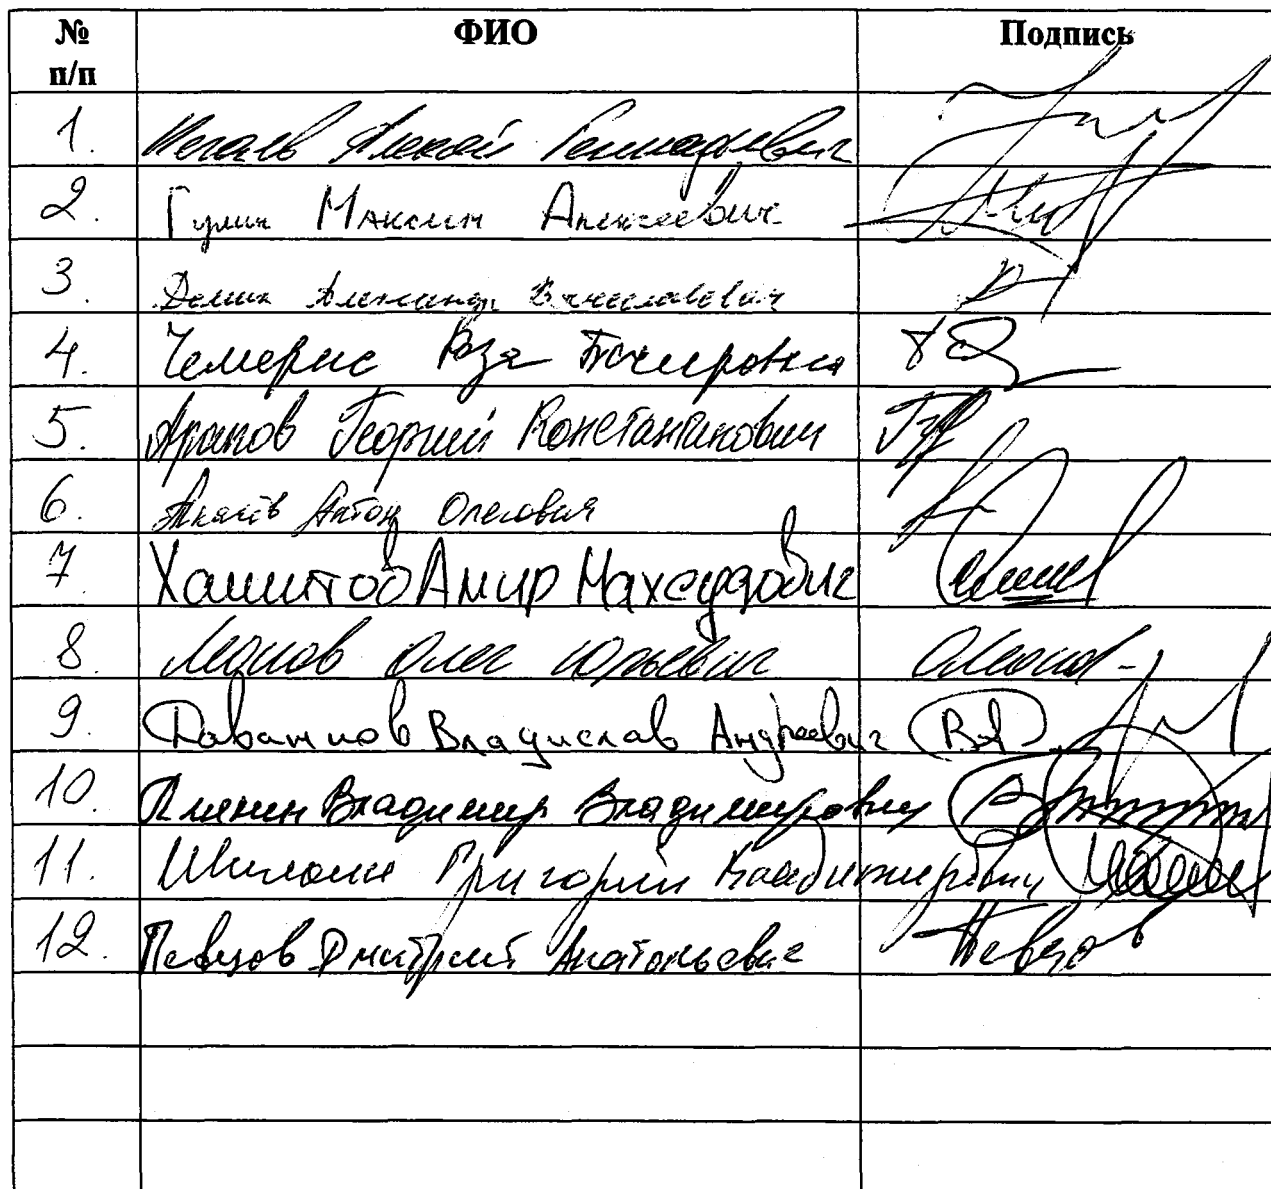 № п/п ФИО Подпись
1. Нечаев Алексей Геннадьевич
2. Гулин Максим Алексеевич
3. Демин Александр Вячеславович
4. Чемерис Роза Басировна
5. Арапов Георгий Константинович
6. Антон Олегович
7 Хамитов Амир Махсудович
8. Леонов Олег Юрьевич
9. Даванков Владислав Андреевич
10. Плякин Владимир Владимирович
11. Шилкин Григорий Владимирович
12. Певцов Дмитрий Анатольевич Певцов